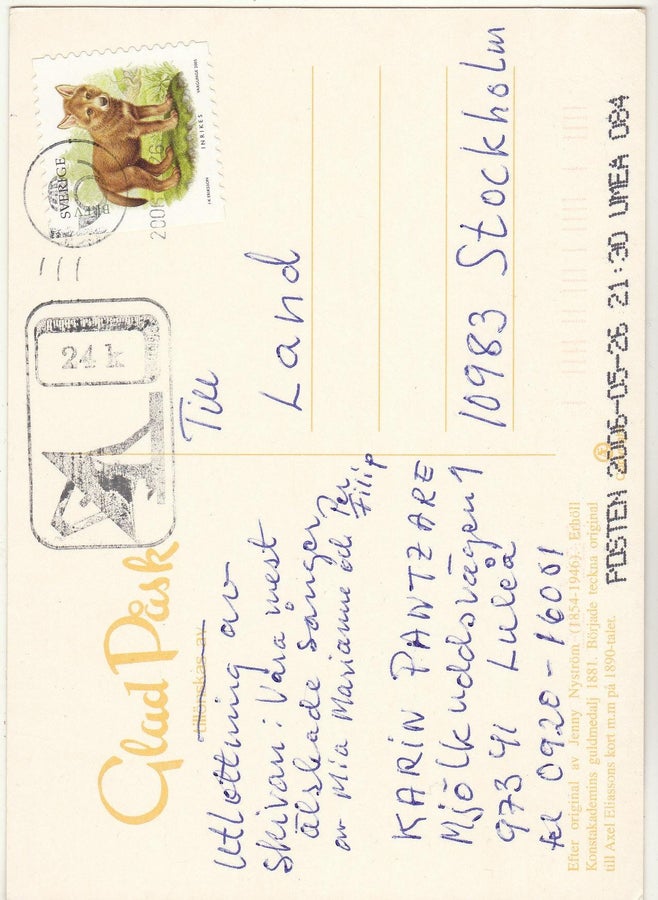 Glad Påsk
tillönskas av
Utlottning av
skivan: Våra mest
älskade sånger,
av Mia Marianne och Per
Filip
KARIN PANTZARE
Mjölkuddsvägen 1
973 41 Luleå
tel 0920-16051
Efter original av Jenny Nyström (1854-1946). Erhöll
Konstakademins guldmedalj 1881. Började teckna original
till Axel Eliassons kort m.m på 1890-talet.
SVERIGE
BREV
INRIKES
2006
24 k
Till
Land
10983 Stockholm
POSTEN 2006-05-26 21:30 UMEA 084